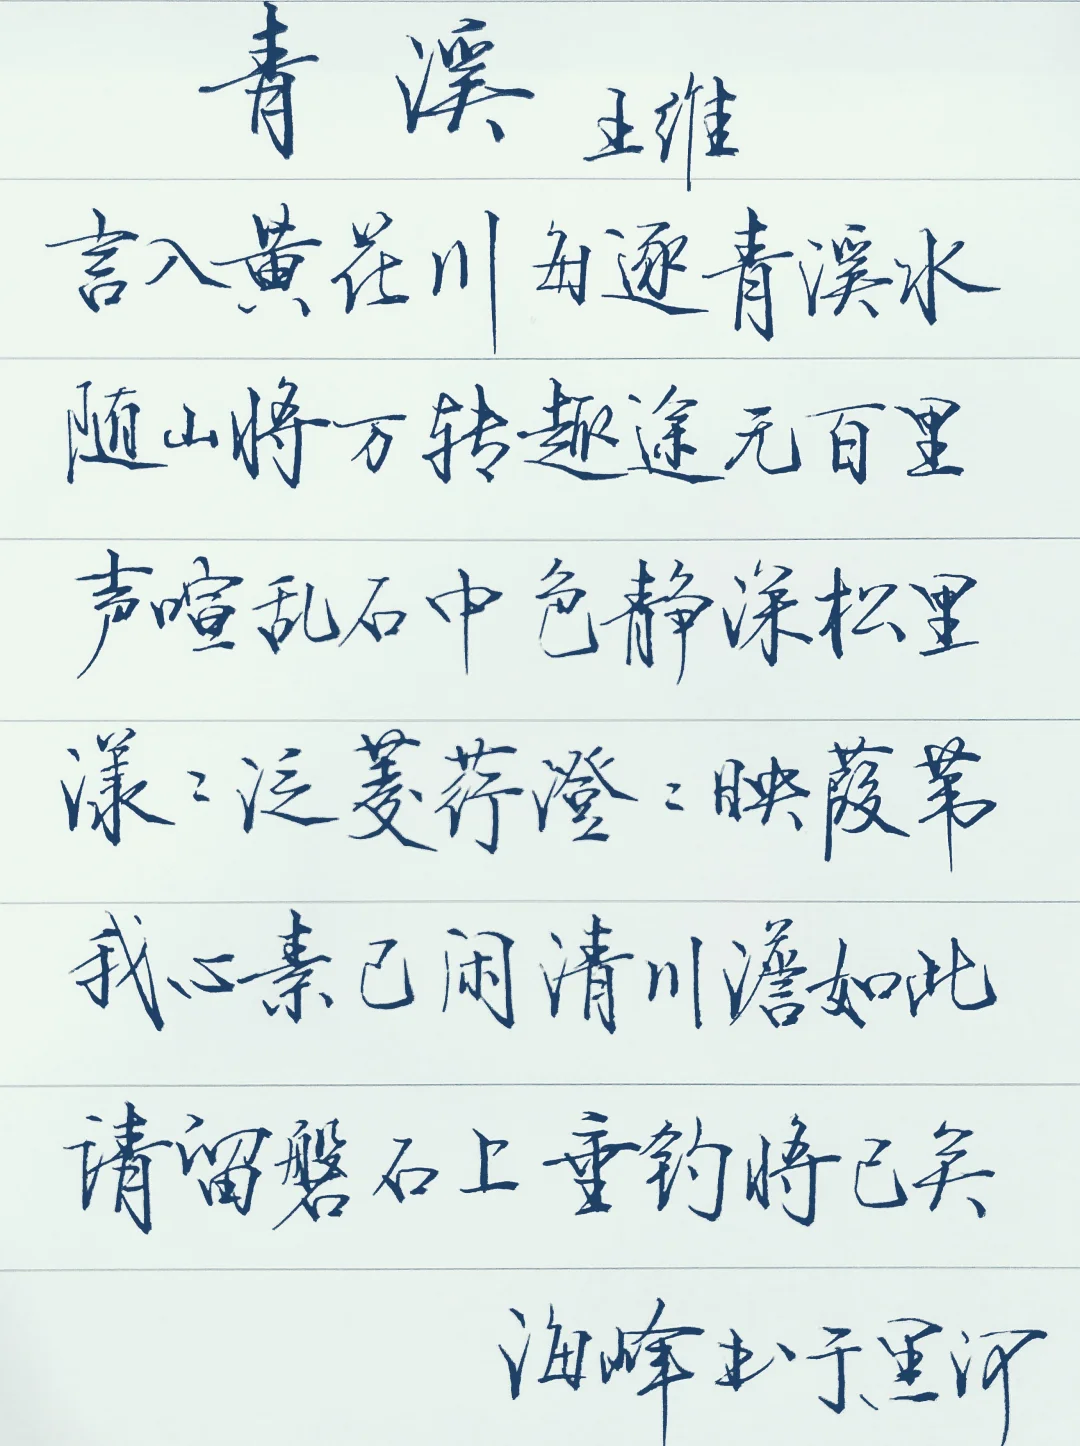 青溪 王维
言入黄花川 每逐青溪水
随山将万转 趣途无百里
声喧乱石中 色静深松里
漾〻泛菱荇 澄〻映葭苇
我心素已闲 清川澹如此
请留磐石上 垂钓将已矣
海峰书于黑河